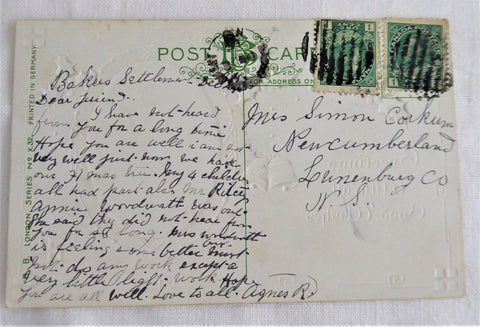 POST CARD
B
FOR ADDRESS ON
B. B. LONDON SERIES No X. 32. PRINTED IN GERMANY.
Bakers Settlement Dec
Dear friend.
I have not heard
from you for a long time
Hope you are well i am not
very well just now we had
our Xmas tree. My 4 children
all had part also Mr
Annie Wordwath was out
She said they did not hear from
You for so long. Mrs
is feeling some better but
not do any work except a
very little light work Hope
You are all well. Love to all. Agnes R.
Mrs Simon Corkum
New Cumberland
Lunenburg Co
N. S.
1
1